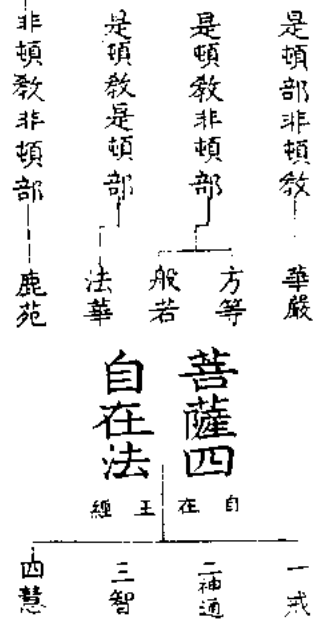 是頓部非頓教
華嚴
是頓教非頓部
方等
般若
是頓教是頓部
法華
非頓教非頓部
鹿苑
菩薩四
自在法
自在王經
一戒
二神通
三智
四慧